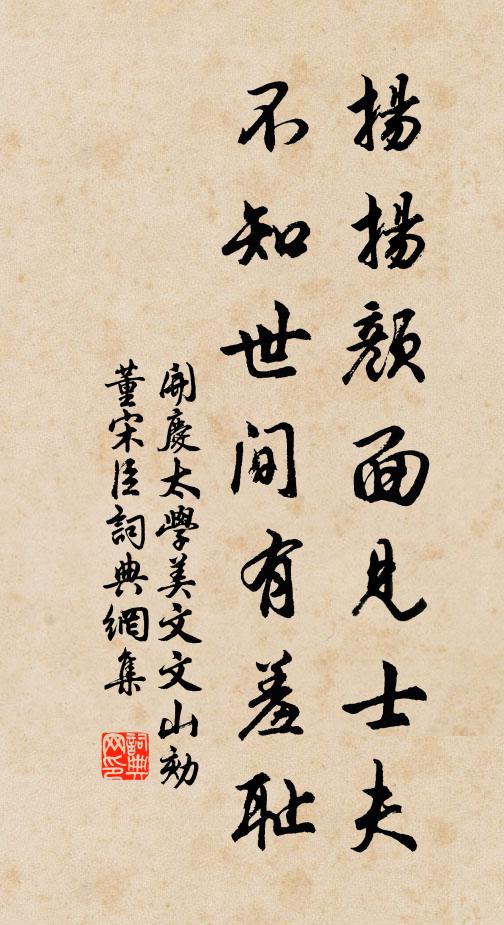 揚揚顏面見士夫
不知世間有羞耻
開慶太學美文文山劾
董宋臣詞典網集
詞典网印